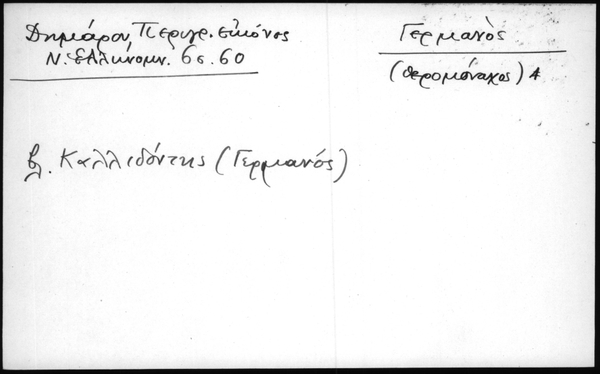 Δημάρου, Περιγρ. εἰκόνος
Ν. Ἑλληνομν. 6ε. 60
Γερμανὸς
(ἱερομόναχος) 4
βλ. Καλλιδόντης (Γερμανός)